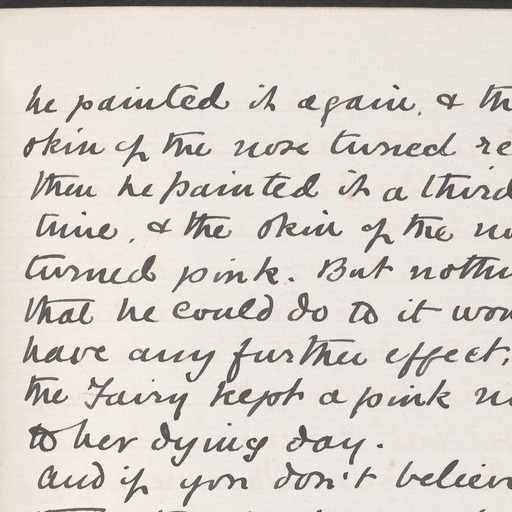 he painted it again, & th
skin of the nose turned re
then he painted it a third
time, & the skin of the no
turned pink. But nothi
that he could do to it wou
have any further effect,
the Fairy kept a pink n
to her dying day.
And if you don't believe